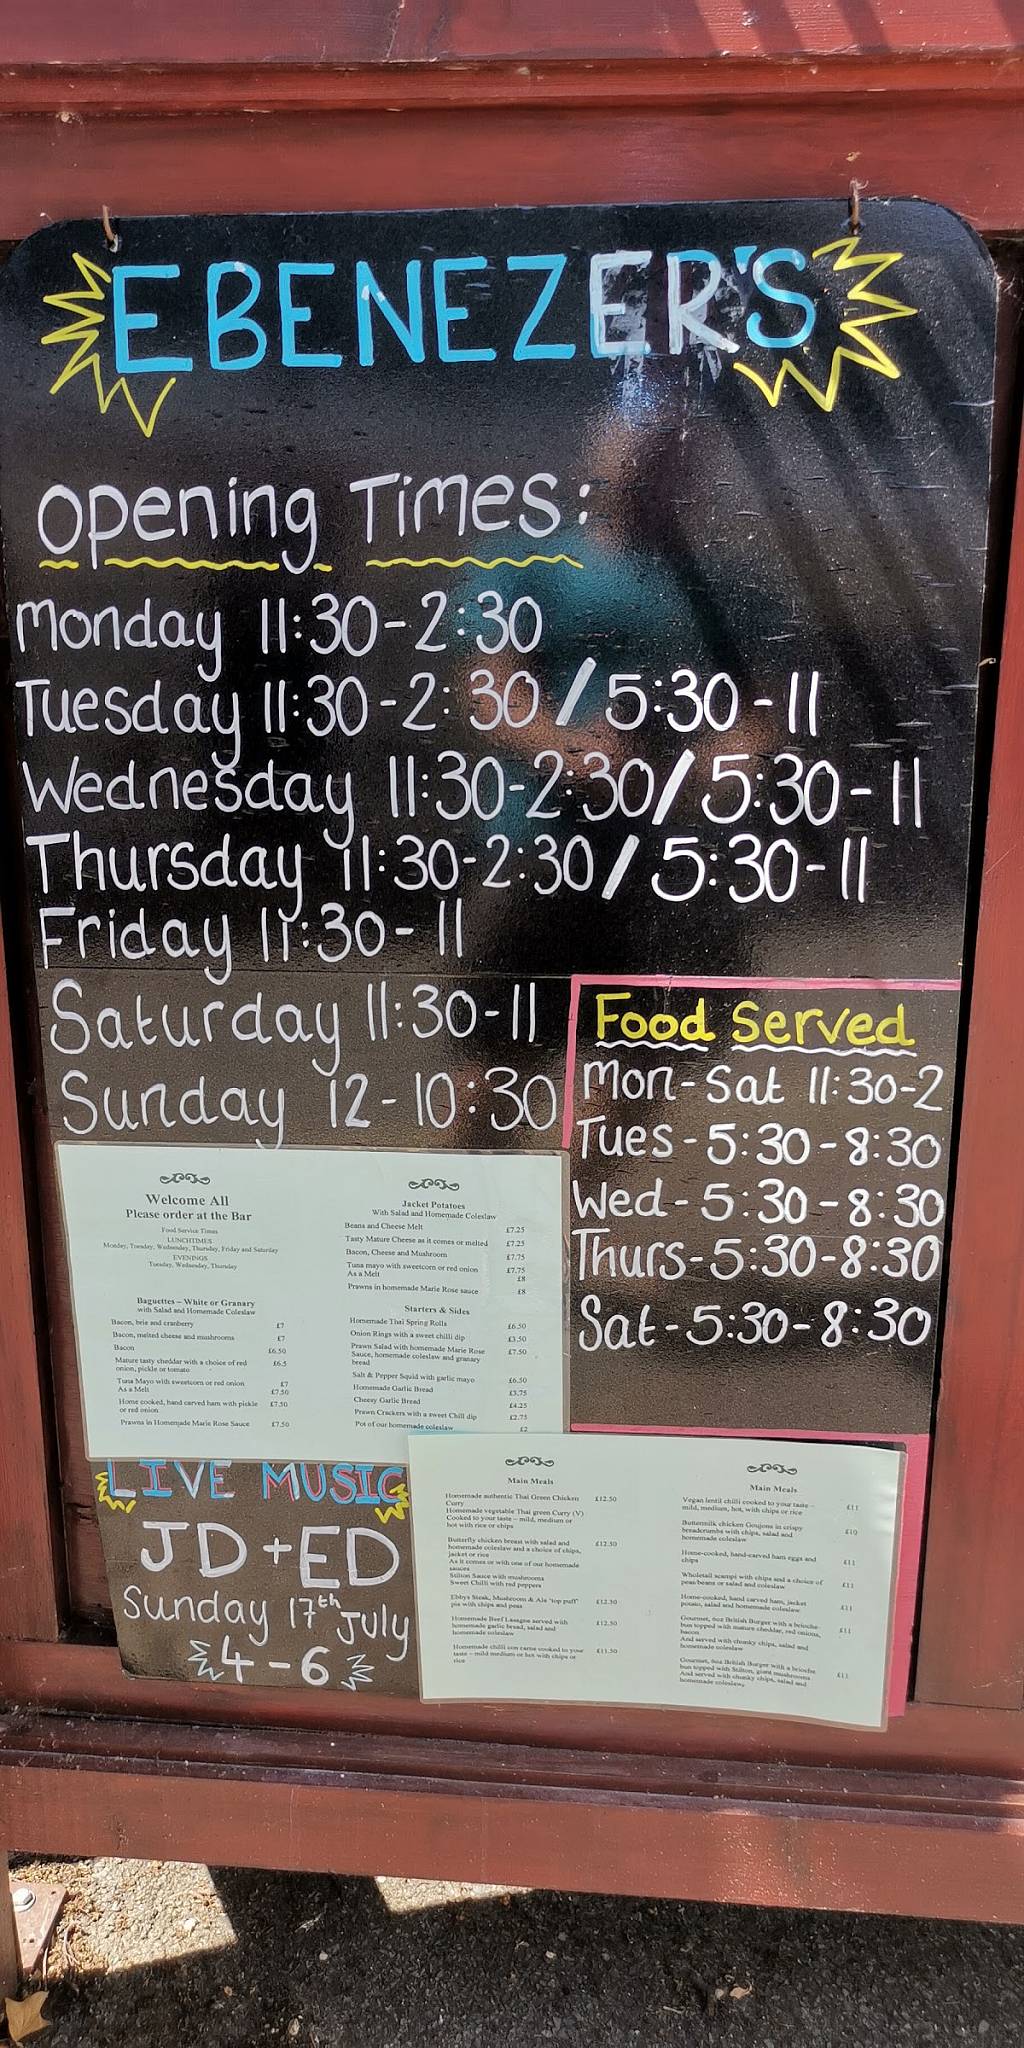 EBENEZER'S
Opening Times:
Monday 11:30-2:30
Tuesday 11:30-2:30/5:30-11
Wednesday 11:30-2:30/5:30-11
Thursday 11:30-2:30/5:30-11
Friday 11:30-11
Saturday 11:30-11
Sunday 12-10:30
Food Served
Mon-Sat 11:30-2
Tues-5:30-8:30
Wed-5:30-8:30
Thurs-5:30-8:30
Sat-5:30-8:30
Welcome All
Please order at the Bar
Food Service Times
LUNCHTIMES
Monday, Tuesday, Wednesday, Thursday, Friday and Saturday
EVENINGS
Tuesday, Wednesday, Thursday
Baguettes – White or Granary
with Salad and Homemade Coleslaw
Bacon, brie and cranberry £7
Bacon, melted cheese and mushrooms £7
Bacon £6.50
Mature tasty cheddar with a choice of red £6.5
onion, pickle or tomato
Tuna Mayo with sweetcorn or red onion £7
As a Melt £7.50
Home cooked, hand carved ham with pickle £7.50
or red onion
Prawns in Homemade Marie Rose Sauce £7.50
Jacket Potatoes
With Salad and Homemade Coleslaw
Beans and Cheese Melt £7.25
Tasty Mature Cheese as it comes or melted £7.25
Bacon, Cheese and Mushroom £7.75
Tuna mayo with sweetcorn or red onion £7.75
As a Melt £8
Prawns in homemade Marie Rose sauce £8
Starters & Sides
Homemade Thai Spring Rolls £6.50
Onion Rings with a sweet chilli dip £3.50
Prawn Salad with homemade Marie Rose £7.50
Sauce, homemade coleslaw and granary
bread
Salt & Pepper Squid with garlic mayo £6.50
Homemade Garlic Bread £3.75
Cheesy Garlic Bread £4.25
Prawn Crackers with a sweet Chill dip £2.75
Pot of our homemade coleslaw £2
LIVE MUSIC
JD+ED
Sunday 17th July
4-6
Main Meals
Homemade authentic Thai Green Chicken £12.50
Curry
Homemade vegetable Thai green Curry (V)
Cooked to your taste – mild, medium or
hot with rice or chips
Butterfly chicken breast with salad and £12.50
homemade coleslaw and a choice of chips,
jacket or rice
As it comes or with one of our homemade
sauces
Stilton Sauce with mushrooms
Sweet Chilli with red peppers
Ebbys Steak, Mushroom & Ale 'top puff' £12.50
pie with chips and peas
Homemade Beef Lasagne served with £12.50
homemade garlic bread, salad and
homemade coleslaw
Homemade chilli con carne cooked to your £11.50
taste – mild medium or hot with chips or
rice
Main Meals
Vegan lentil chilli cooked to your taste – £11
mild, medium, hot, with chips or rice
Buttermilk chicken Goujons in crispy £10
breadcrumbs with chips, salad and
homemade coleslaw
Home-cooked, hand-carved ham eggs and £11
chips
Wholetail scampi with chips and a choice of £11
peas/beans or salad and coleslaw
Home-cooked, hand carved ham, jacket £11
potato, salad and homemade coleslaw
Gourmet, 6oz British Burger with a brioche £11
bun topped with mature cheddar, red onions,
bacon
And served with chunky chips, salad and
homemade coleslaw
Gourmet, 6oz British Burger with a brioche £11
bun topped with Stilton, giant mushrooms
And served with chunky chips, salad and
homemade coleslaw,